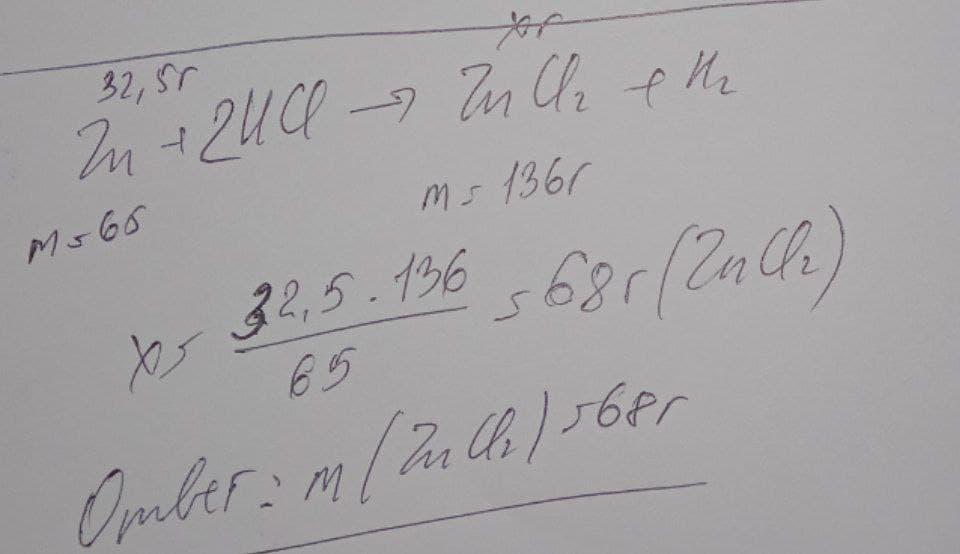 32,5г xг
Zn + 2HCl → ZnCl₂ + H₂
m = 65 m = 136г
x = 32,5 · 136 / 65 = 68г (ZnCl₂)
Ответ: m (ZnCl₂) = 68г